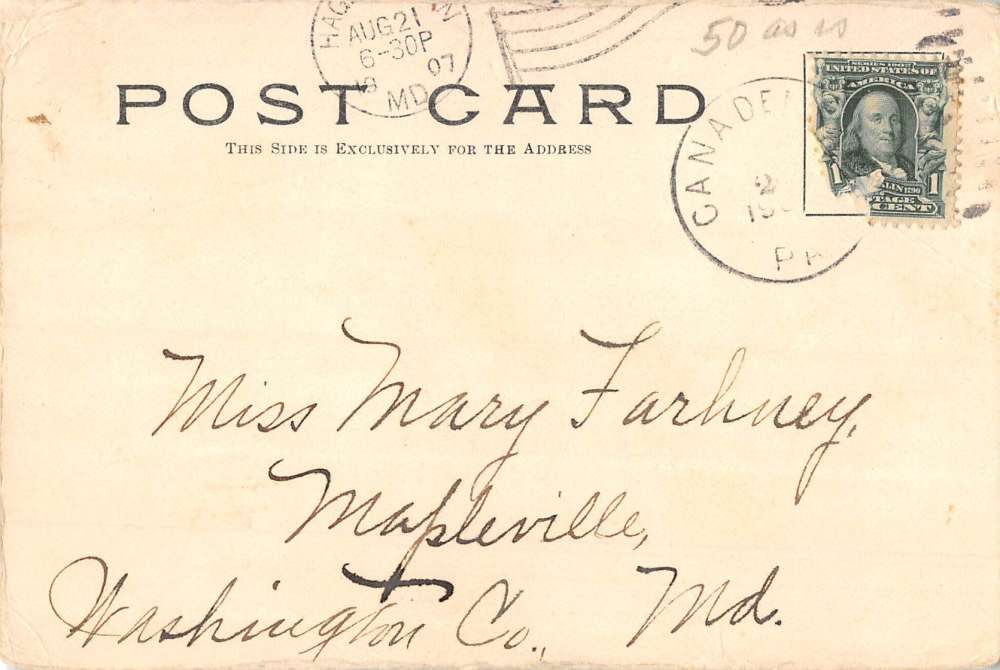 AUG 21
6-30P
07
MD.
50 as is
POST CARD
THIS SIDE IS EXCLUSIVELY FOR THE ADDRESS
SERIES 1902
UNITED STATES OF
AMERICA
1 1
CENT
CANADE
2
PA
Miss Mary Farhney,
Mapleville,
Washington Co., Md.